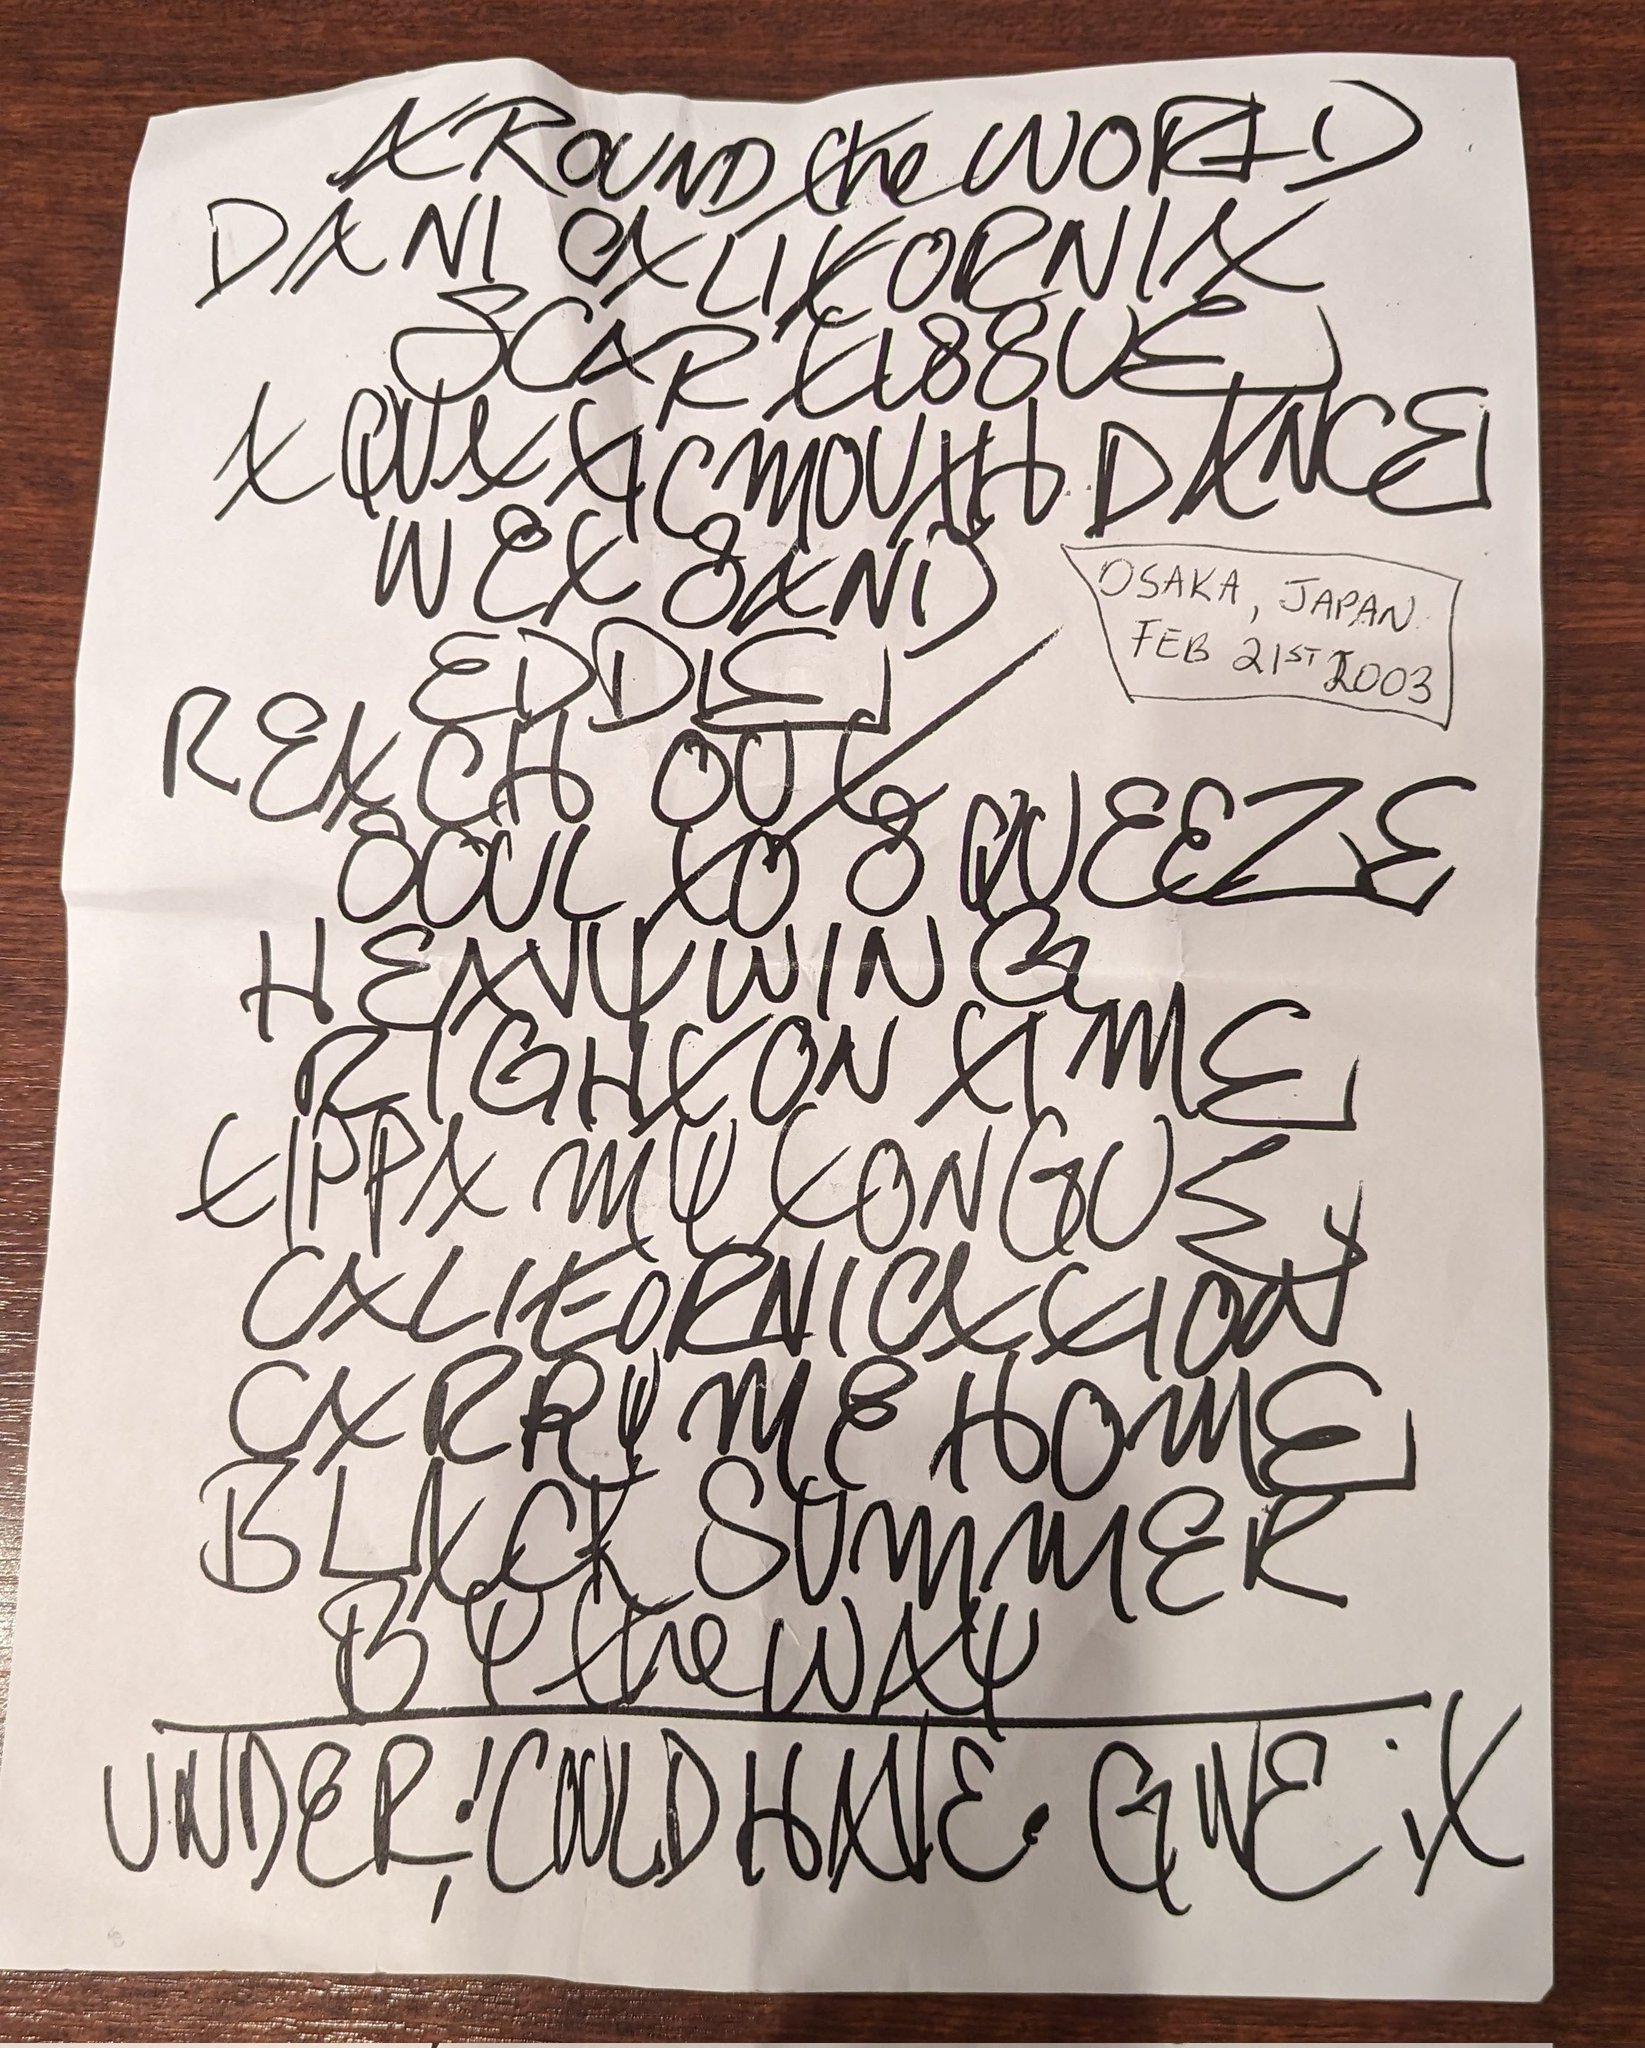 AROUND the WORLD
DANI CALIFORNIA
SCAR TISSUE
AQUATIC MOUTH DANCE
WET SAND
EDDIE
REACH OUT
SOUL TO SQUEEZE
HEAVY WING
RIGHT ON TIME
TIPPA MY TONGUE
CALIFORNICATION
CARRY ME HOME
BLACK SUMMER
BY the WAY
UNDER, ! COULD HAVE • GIVE
OSAKA, JAPAN
FEB 21ST 2003